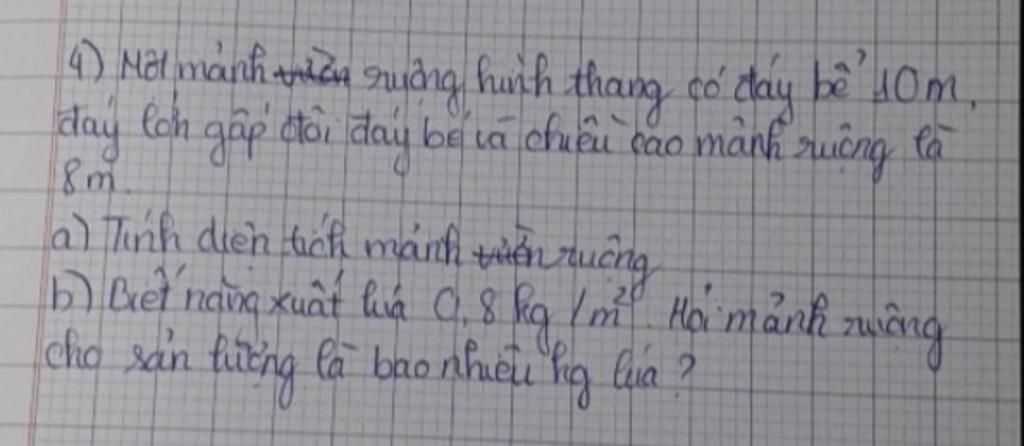 4) Một mảnh ruộng hình thang có đáy bé 10m,
đáy lớn gấp đôi đáy bé và chiều cao mảnh ruộng là
8m.
a) Tính diện tích mảnh ruộng
b) Biết năng xuất lúa 0,8 kg/m². Hỏi mảnh ruộng
cho sản lượng là bao nhiêu kg lúa?